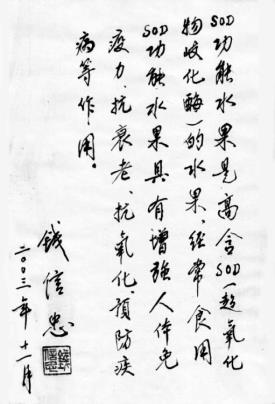 SOD功能水果是高含SOD（超氧化
物歧化酶）的水果、经常食用
SOD功能水果具有增强人体免
疫力、抗衰老、抗氧化预防疾
病等作用。
錢信忠
二〇〇三年十一月